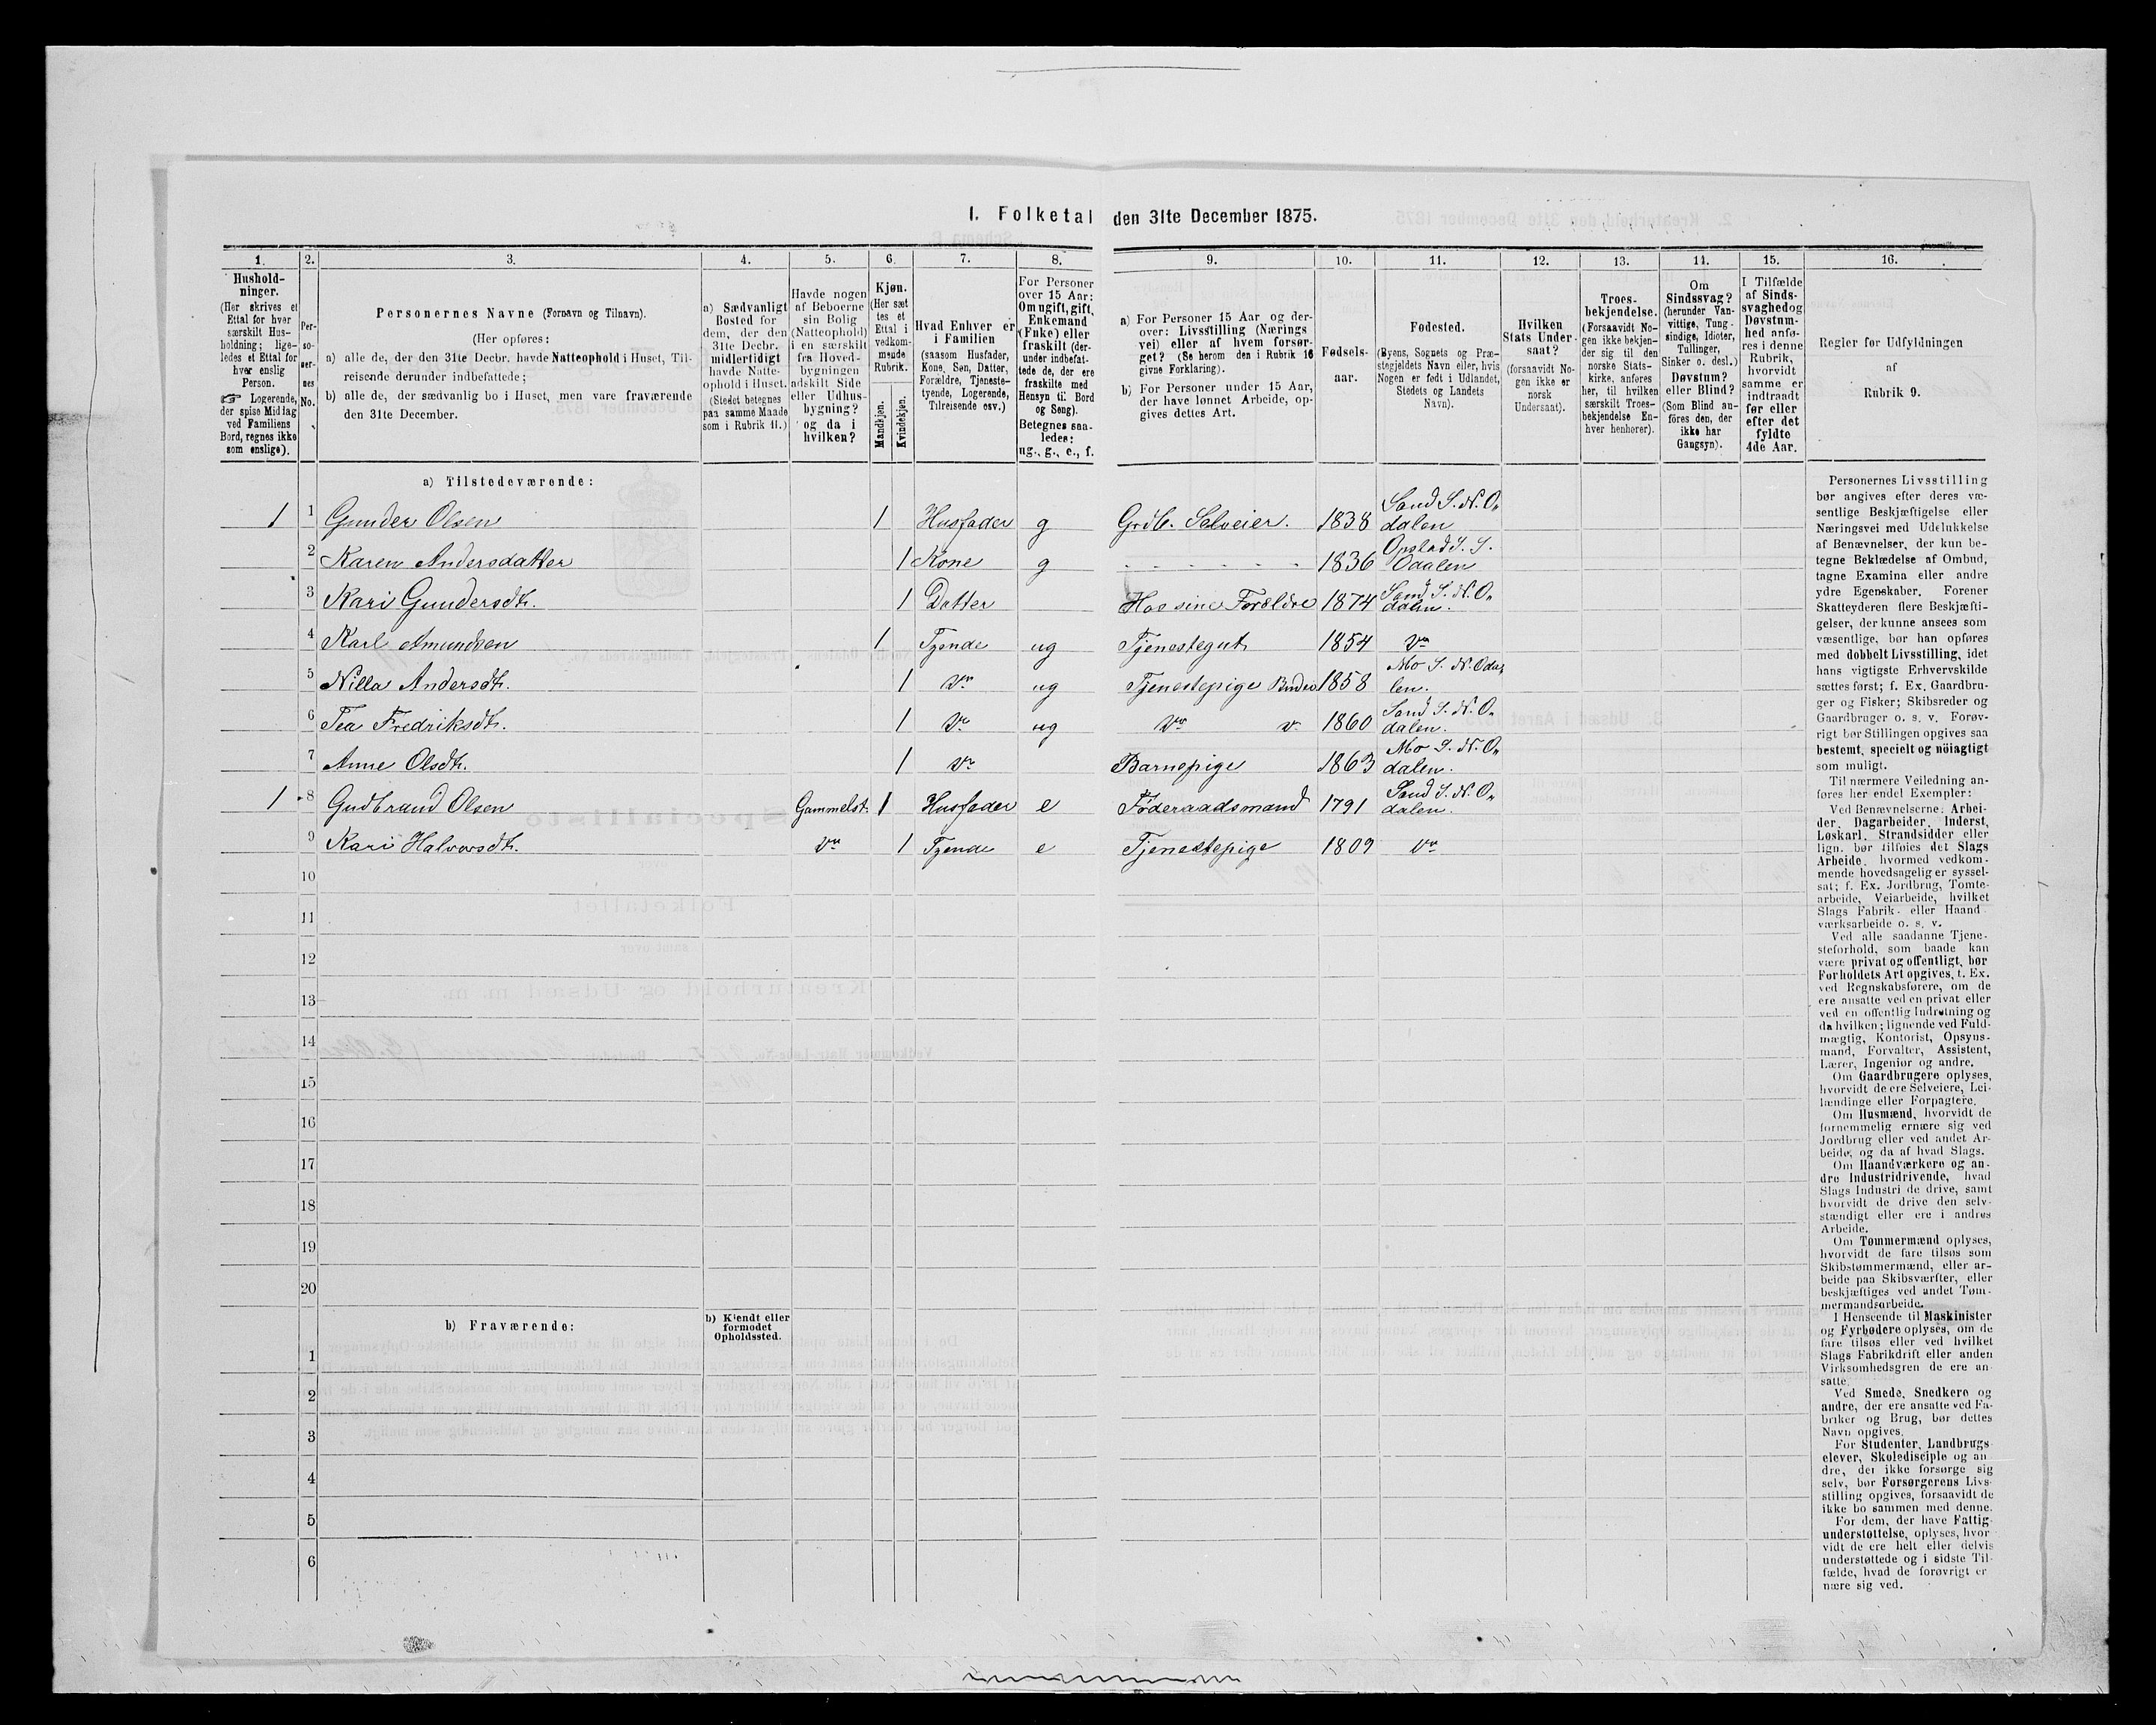 1. Folketal den 31te December 1875.
1.
Hushold-
ninger.
(Her skrives et
Ettal for hver
særskilt Hus-
holdning; lige-
ledes et Ettal for
hver enslig
Person.
☞ Logerende,
der spise Middag
ved Familiens
Bord, regnes ikke
som enslige).
2.
Per-
so-
ner-
nes
No.
3.
Personernes Navne (Fornavn og Tilnavn).
(Her opføres:
a) alle de, der den 31te Decbr. havde Natteophold i Huset, Til-
reisende derunder indbefattede;
b) alle de, der sædvanlig bo i Huset, men vare fraværende
den 31te December.
4.
a) Sædvanligt
Bosted for
dem, der den
31te Decbr.
midlertidigt
havde Natte-
ophold i Huset.
(Stedet betegnes
paa samme Maade
som i Rubrik 11.)
5.
Havde nogen
af Beboerne
sin Bolig
(Natteophold)
i en særskilt
fra Hoved-
bygningen
adskilt Side
eller Udhus-
bygning?
og da i
hvilken?
6.
Kjøn.
(Her sæt
tes et
Ettal i
vedkom-
mende
Rubrik.
Mandkjøn.
Kvindekjøn.
7.
Hvad Enhver er
i Familien
(saasom Husfader,
Kone, Søn, Datter,
Forældre, Tjeneste-
tyende, Logerende,
Tilreisende osv.)
8.
For Personer
over 15 Aar:
Om ugift, gift,
Enkemand
(Enke) eller
fraskilt (der-
under indbefat-
tede de, der ere
fraskilte med
Hensyn til Bord
og Seng).
Betegnes saa-
ledes:
ug., g., e., f.
9.
a) For Personer 15 Aar og der-
over: Livsstilling (Nærings
vei) eller af hvem forsør-
get? (Se herom den i Rubrik 16
givne Forklaring).
b) For Personer under 15 Aar,
der have lønnet Arbeide, op-
gives dettes Art.
10.
Fødsels-
aar.
11.
Fødested.
(Byens, Sognets og Præ-
stegjeldets Navn eller, hvis
Nogen er født i Udlandet,
Stedets og Landets
Navn).
12.
Hvilken
Stats Under-
saat?
(forsaavidt No-
gen ikke er
norsk
Undersaat).
13.
Troes-
bekjendelse.
(Forsaavidt No-
gen ikke bekjen-
der sig til den
norske Stats-
kirke, anføres
her, til hvilken
særskilt Troes-
bekjendelse En-
hver henhører).
14.
Om
Sindssvag?
(herunder Van-
vittige, Tung-
sindige, Idioter,
Tullinger,
Sinker o. desl.)
Døvstum?
eller Blind?
(Som Blind an-
føres den, der
ikke har
Gangsyn).
15.
I Tilfælde
af Sinds-
svaghed og
Døvstum-
hed anfø-
res i denne
Rubrik,
hvorvidt
samme er
indtraadt
før eller
efter det
fyldte
4de Aar.
16.
Regler for Udfyldningen
af
Rubrik 9.
a) Tilstedeværende:
1 1 Gunder Olsen 1 Husfader g Grdb. Selveier. 1838 Sand S. N. O„
dalen
2 Karen Andersdatter 1 Kone g 1836 Opstad S. S.
Odalen
3 Kari Gundersdtr. 1 Datter Hos sine Forældre 1874 Sand S. N. O„
dalen.
4 Karl Amundsen 1 Tyende ug Tjenestegut 1854 Do
5 Nilla Andersdtr. 1 Do ug Tjenestepige Budeie 1858 Mo S. N. Oda„
len.
6 Tea Fredriksdtr. 1 Do ug Do Do 1860 Sand S. N. O„
dalen.
7 Anne Olsdtr. 1 Do Barnepige 1863 Mo S. N. O„
dalen.
1 8 Gudbrand Olsen Gammelst. 1 Husfader e Føderaadsmand 1791 Sand S. N. O„
dalen.
9 Kari Halvorsdtr. Do 1 Tyende e Tjenestepige 1809 Do
10
11
12
13
14
15
16
17
18
19
20
b) Fraværende:
b) Kjendt eller
formodet
Opholdssted.
1
2
3
4
5
6
Personernes Livsstilling
bør angives efter deres væ-
sentlige Beskjæftigelse eller
Næringsvei med Udelukkelse
af Benævnelser, der kun be-
tegne Beklædelse af Ombud,
tagne Examina eller andre
ydre Egenskaber. Forener
Skatteyderen flere Beskjæfti-
gelser, der kunne ansees som
væsentlige, bør han opføres
med dobbelt Livsstilling, idet
hans vigtigste Erhvervskilde
sættes først; f. Ex. Gaardbru-
ger og Fisker; Skibsreder og
Gaardbruger o. s. v. Forøv-
rigt bør Stillingen opgives saa
bestemt, specielt og nöiagtigt
som muligt.
Til nærmere Veiledning an-
føres her endel Exempler:
Ved Benævnelserne: Arbei-
der, Dagarbeider, Inderst,
Løskarl, Strandsidder eller
lign. bør tilføies det Slags
Arbeide, hvormed vedkom-
mende hovedsagelig er syssel-
sat; f. Ex. Jordbrug, Tomte-
arbeide, Veiarbeide, hvilket
Slags Fabrik- eller Haand
værksarbeide o. s. v.
Ved alle saadanne Tjene-
steforhold, som baade kan
være privat og offentligt, bør
Forholdets Art opgives, f. Ex.
ved Regnskabsførere, om de
ere ansatte ved en privat eller
ved en offentlig Indretning og
da hvilken; lignende ved Fuld-
mægtig, Kontorist, Opsyns-
mand, Forvalter, Assistent,
Lærer, Ingeniør og andre.
Om Gaardbrugere oplyses,
hvorvidt de ere Selveiere, Lei-
lændinge eller Forpagtere.
Om Husmænd, hvorvidt de
fornemmelig ernære sig ved
Jordbrug eller ved andet Ar-
beide, og da af hvad Slags.
Om Haandværkere og an-
dre Industridrivende, hvad
Slags Industri de drive, samt
hvorvidt de drive den selv-
stændigt eller ere i andres
Arbeide.
Om Tømmermænd oplyses,
hvorvidt de fare tilsøs som
Skibstømmermænd, eller ar-
beide paa Skibsværfter, eller
beskjæftiges ved andet Tøm-
mermandsarbeide.
I Henseende til Maskinister
og Fyrbødere oplyses, om de
fare tilsøs eller ved hvilket
Slags Fabrikdrift eller anden
Virksomhedsgren de ere an-
satte.
Ved Smede, Snedkere og
andre, der ere ansatte ved Fa-
briker og Brug, bør dettes
Navn opgives.
For Studenter, Landbrugs-
elever, Skoledisciple og an
dre, der ikke forsørge sig
selv, bør Forsørgerens Livs-
stilling opgives, forsaavidt de
ikke bo sammen med denne.
For dem, der have Fattig-
understøttelse, oplyses, hvor
vidt de ere helt eller delvis
understøttede og i sidste Til-
fælde, hvad de forøvrigt er
nære sig ved.